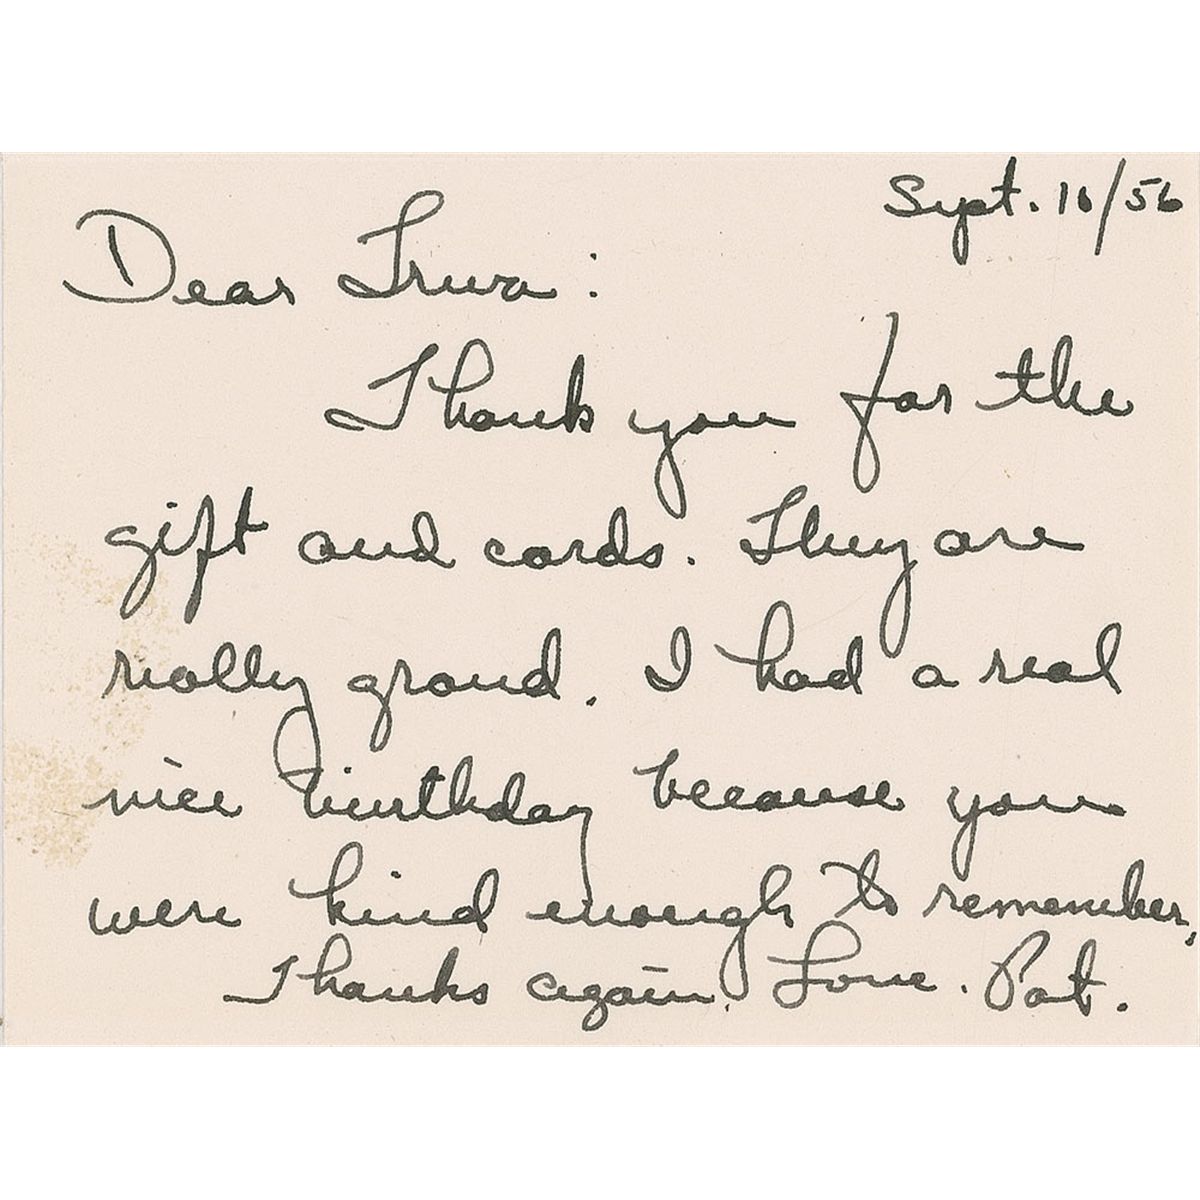 Sept. 16/56
Dear Irva:
Thank you for the
gift and cards. They are
really grand. I had a real
nice birthday because you
were kind enough to remember,
Thanks again. Love. Pat.